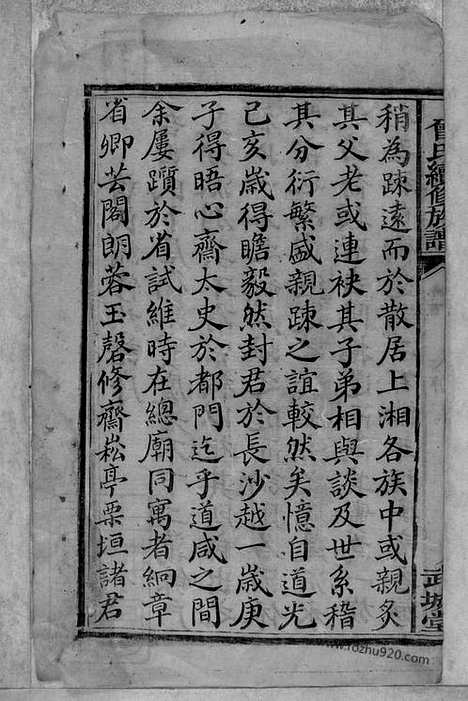 曾氏續修族譜
武城堂
稍為踈遠而於散居上湘各族中或親炙
其父老或連袂其子弟相與談及世系稽
其分衍繁盛親踈之誼較然矣憶自道光
己亥歲得瞻毅然封君於長沙越一歲庚
子得晤心齋太史於都門迄乎道咸之間
余屢躓於省試維時在總廟同寓者絅章
省卿芸閣朗蓉玉磬修齋崧亭栗垣諸君
www.rozhu920.com